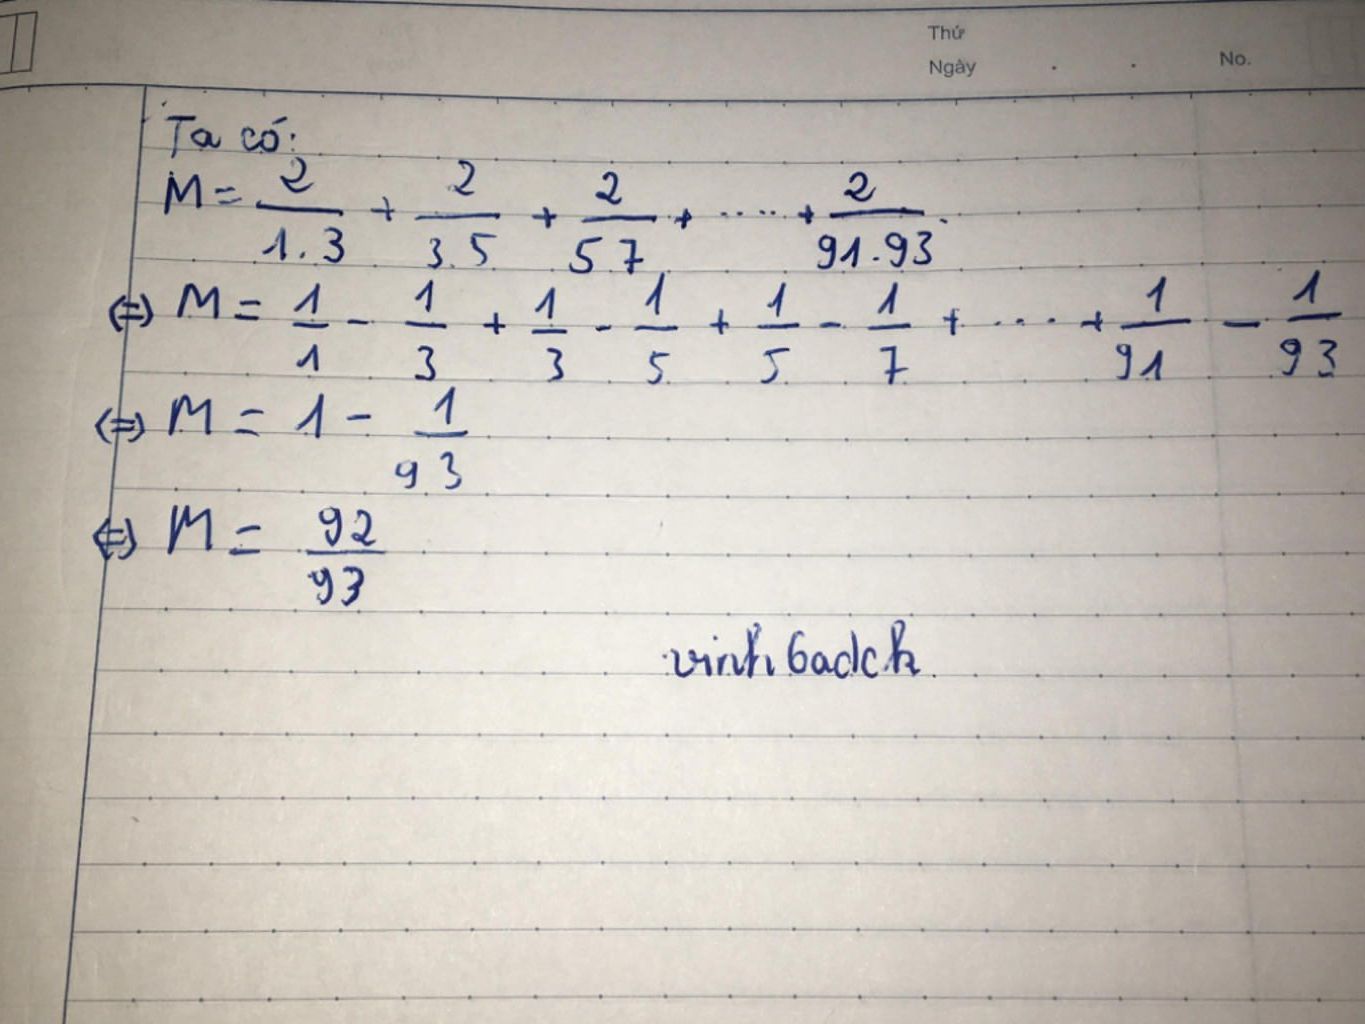 Thứ
Ngày . . No.
Ta có:
M = 2/1.3 + 2/3.5 + 2/5 7 + ..... + 2/91.93.
⇔ M = 1/1 - 1/3 + 1/3 - 1/5 + 1/5 - 1/7 + .... + 1/91 - 1/93
⇔ M = 1 - 1/93
⇔ M = 92/93
vinh6adch